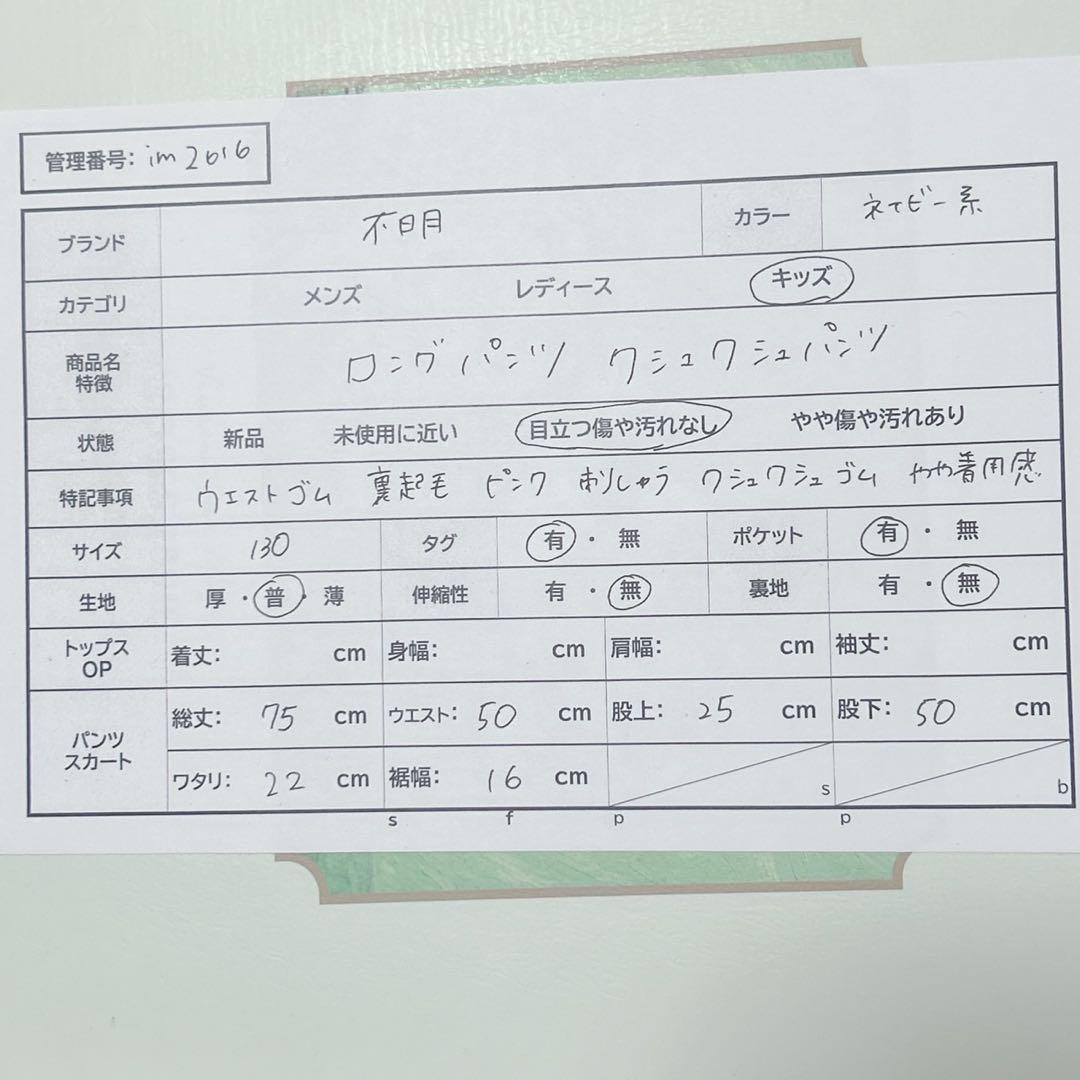 管理番号: im2616
ブランド 不明 カラー ネイビー系
カテゴリ メンズ レディース キッズ
商品名 特徴 ロングパンツ クシュクシュパンツ
状態 新品 未使用に近い 目立つ傷や汚れなし やや傷や汚れあり
特記事項 ウエストゴム 裏起毛 ピンク ししゅう クシュクシュゴム やや着用感
サイズ 130 タグ 有・無 ポケット 有・無
生地 厚・普・薄 伸縮性 有・無 裏地 有・無
トップス OP 着丈: cm 身幅: cm 肩幅: cm 袖丈: cm
パンツ スカート 総丈: 75 cm ウエスト: 50 cm 股上: 25 cm 股下: 50 cm
ワタリ: 22 cm 裾幅: 16 cm s b
s f p p